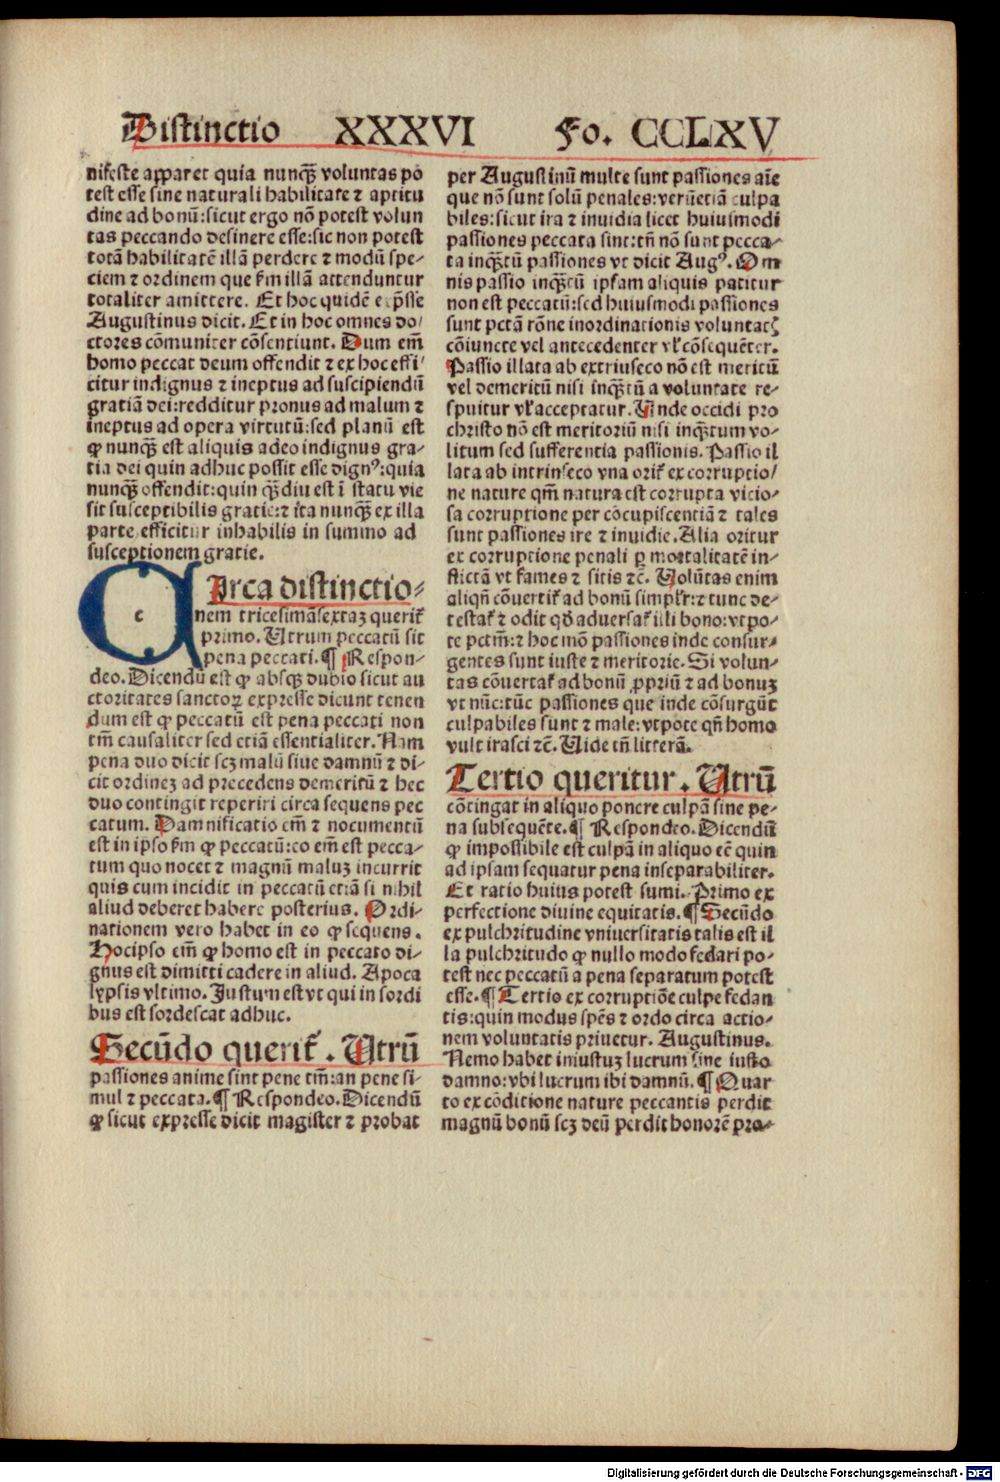 Distinctio XXXVI Fo. CCLXV
nifeste apparet quia nunqꝫ voluntas po
test esse sine naturali habilitate ⁊ aptitu
dine ad bonū:sicut ergo nō potest volun
tas peccando desinere esse:sic non potest
totā habilitatē illā perdere ⁊ modū spe⸗
ciem ⁊ ordinem que ẜm illā attenduntur
totaliter amittere. Et hoc quidē exp̄sse
Augustinus dicit. Et in hoc omnes do/
ctores cōmuniter cōsentiunt. Dum em̄
homo peccat deum offendit ⁊ ex hoc effi/
citur indignus ⁊ ineptus ad suscipiendū
gratiā dei:redditur pronus ad malum ⁊
ineptus ad opera virtutū:sed planū est
ꝙ nunqꝫ est aliquis adeo indignus gra⸗
tia dei quin adhuc possit esse dignꝰ:quia
nunqꝫ offendit:quin qꝫdiu est ī statu vie
sit susceptibilis gratie:⁊ ita nunqꝫ ex illa
parte efficitur inhabilis in summo ad
susceptionem gratie.
c
Irca distinctio⸗
nem tricesimāsextaꝫ querit̄
primo. Utrum peccatū sit
pena peccati.¶ Respon⸗
deo. Dicendū est ꝙ absqꝫ dubio sicut au
ctoritates sanctoꝝ expresse dicunt tenen
dum est ꝙ peccatū est pena peccati non
tm̄ causaliter sed etiā essentialiter. Nam
pena duo dicit scꝫ malū siue damnū ⁊ di⸗
cit ordineꝫ ad precedens demeritū ⁊ hec
duo contingit reperiri circa sequens pec
catum. Damnificatio em̄ ⁊ nocumentū
est in ipso ẜm ꝙ peccatū:eo em̄ est pecca⸗
tum quo nocet ⁊ magnū maluꝫ incurrit
quis cum incidit in peccatū etiā si nihil
aliud deberet habere posterius. Ordi⸗
nationem vero habet in eo ꝙ sequens.
Hocipso em̄ ꝙ homo est in peccato di⸗
gnus est dimitti cadere in aliud. Apoca
lypsis vltimo. Justum est vt qui in sordi
bus est sordescat adhuc.
Secūdo querit̄. Utrū
passiones anime sint pene tm̄:an pene si⸗
mul ⁊ peccata.¶ Respondeo. Dicendū
ꝙ sicut expresse dicit magister ⁊ probat
per Augustinū multe sunt passiones aīe
que nō sunt solū penales:verūetiā culpa
biles:sicut ira ⁊ inuidia licet huiusmodi
passiones peccata sint:tn̄ nō sunt pecca⸗
ta inqꝫtū passiones vt dicit Augꝰ. Om
nis passio inqꝫtū ipsam aliquis patitur
non est peccatū:sed huiusmodi passiones
sunt pctā rōne inordinationis voluntatꝭ
cōiuncte vel antecedenter vł cōsequēter.
Passio illata ab extriuseco nō est meritū
vel demeritū nisi inqꝫtū a voluntate re⸗
spuitur vł acceptatur. Unde occidi pro
christo nō est meritoriū nisi inqꝫtum vo⸗
litum sed sufferentia passionis. Passio il
lata ab intrinseco vna orit̄ ex corruptio/
ne nature qm̄ natura est corrupta vicio⸗
sa corruptione per cōcupiscentiā ⁊ tales
sunt passiones ire ⁊ inuidie. Alia oritur
ex corruptione penali ꝑ mortalitatē in⸗
flictā vt fames ⁊ sitis ⁊c̄. Volūtas enim
aliqn̄ cōuertit̄ ad bonū simplr̄:⁊ tunc de⸗
testat̄ ⁊ odit qđ aduersat̄ illi bono:vtpo⸗
te pctm̄:⁊ hoc mō passiones inde consur⸗
gentes sunt iuste ⁊ meritorie. Si volun⸗
tas cōuertat̄ ad bonū ꝓpriū ⁊ ad bonuꝫ
vt nūc:tūc passiones que inde cōsurgūt
culpabiles sunt ⁊ male:vtpote qn̄ homo
vult irasci ⁊c̄. Uide tn̄ litterā.
Tertio queritur. Utrū
cōtingat in aliquo ponere culpā sine pe⸗
na subsequēte.¶ Respondeo. Dicendū
ꝙ impossibile est culpā in aliquo eē quin
ad ipsam sequatur pena inseparabiliter.
Et ratio huius potest sumi. Primo ex
perfectione diuine equitatis.¶ Secūdo
ex pulchritudine vniuersitatis talis est il
la pulchritudo ꝙ nullo modo fedari po⸗
test nec peccatū a pena separatum potest
esse.¶ Tertio ex corruptiōe culpe fedan
tis:quin modus spēs ⁊ ordo circa actio⸗
nem voluntatis priuetur. Augustinus.
Nemo habet iniustuꝫ lucrum sine iusto
damno:vbi lucrum ibi damnū.¶ Quar
to ex cōditione nature peccantis perdit
magnū bonū scꝫ deū perdit honorē pro⸗
Digitalisierung gefördert durch die Deutsche Forschungsgemeinschaft - DFG